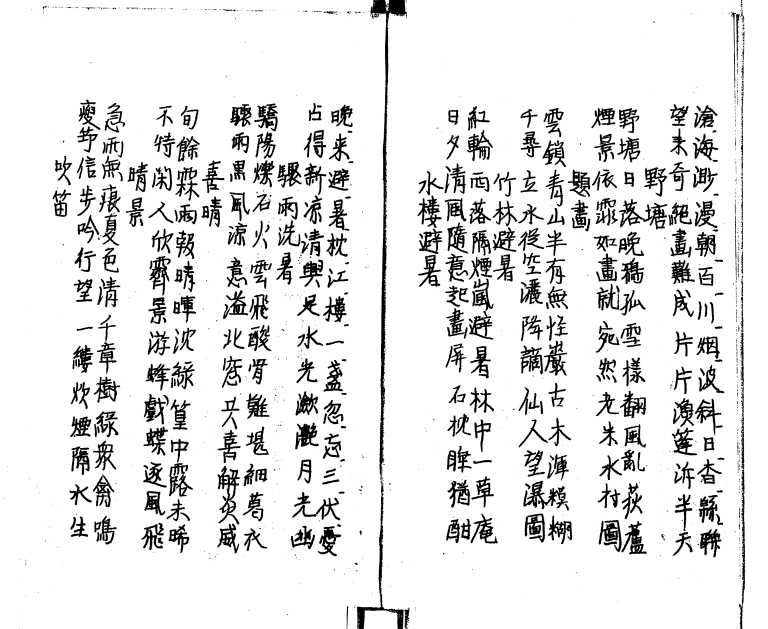 滄海渺漫朝百川烟波斜日杳緜聯
望未奇絕畫難成片片漁篷泝半天
野塘
野塘日落晚鴉孤雪樣翻風亂荻蘆
煙景依霏如畫就宛然老朱水村圖
題畫
雲鎖青山半有無怪巖古木渾糢糊
千尋立水從空灑降謫仙人望瀑圖
竹林避暑
紅輪西落隔煙嵐避暑林中一草庵
日夕清風隨意起畫屏石枕睡猶酣
水樓避暑
晚來避暑枕江樓一盞忽忘三伏憂
占得新凉清興足水光瀲灧月光幽
驟雨洗暑
驕陽爍石火雲飛酸骨難堪細葛衣
驟雨黑風涼意溢北窓共喜解炎威
喜晴
旬餘霖雨報晴暉沈綠篁中露未晞
不特閑人欣霽景游蜂戲蝶逐風飛
晴景
急雨無痕夏色清千章樹綠衆禽鳴
瘦笻信步吟行望一縷炊煙隔水生
吹笛